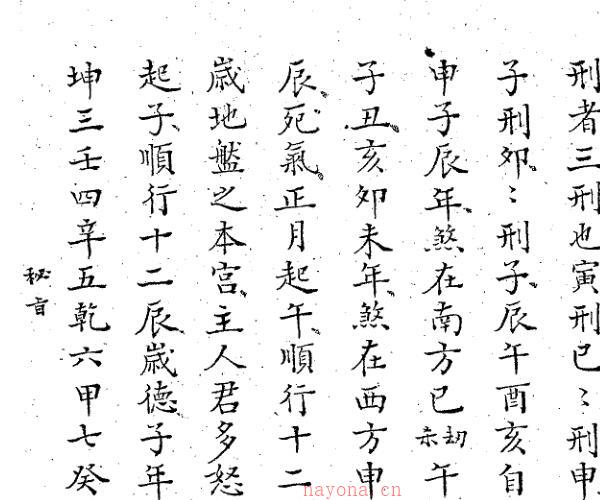 刑者三刑也寅刑巳〻刑申
子刑卯〻刑子辰午酉亥自
申子辰年煞在南方巳劫杀午
子丑亥卯未年煞在西方申
辰死氣正月起午順行十二
歲地盤之本宮主人君多怒
起子順行十二辰歲德子年
坤三壬四辛五乾六甲七癸
秘旨
nayona.cn